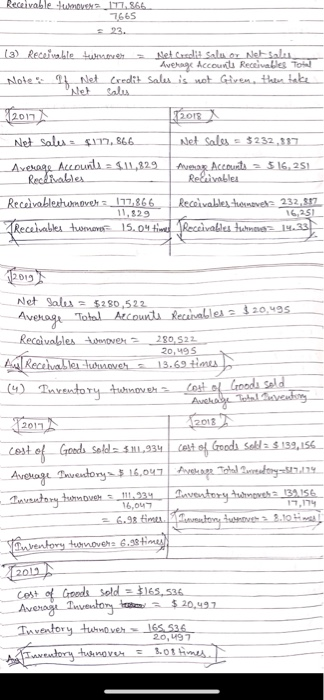 Receivable turnover = 177,866
7,665
= 23.
(3) Receivable turnover = Net Credit Sales or Net Sales
Average Accounts Receivables Total
Note :- If Net Credit Sales is not Given, then take
Net Sales
2017
2018
Net Sales = $177,866
Net Sales = $232,887
Average Accounts = $11,829
Receivables
Average Accounts = $16,251
Receivables
Receivable turnover = 177,866
11,829
Receivables turnover = 232,887
16,251
Receivables turnover = 15.04 times
Receivables turnover = 14.33
2019
Net Sales = $280,522
Average Total Accounts Receivables = $20,495
Receivables turnover = 280,522
20,495
Ans Receivables turnover = 13.69 times
(4) Inventory turnover = Cost of Goods Sold
Average Total Inventory
2017
2018
Cost of Goods Sold = $111,934
Cost of Goods Sold = $139,156
Average Inventory = $16,047
Average Total Inventory = $17,174
Inventory turnover = 111,934
16,047
= 6.98 times
Inventory turnover = 139,156
17,174
Inventory turnover = 8.10 times
Inventory turnover = 6.98 times
2019
Cost of Goods Sold = $165,536
Average Inventory = $20,497
Inventory turnover = 165,536
20,497
Ans Inventory turnover = 8.08 times.